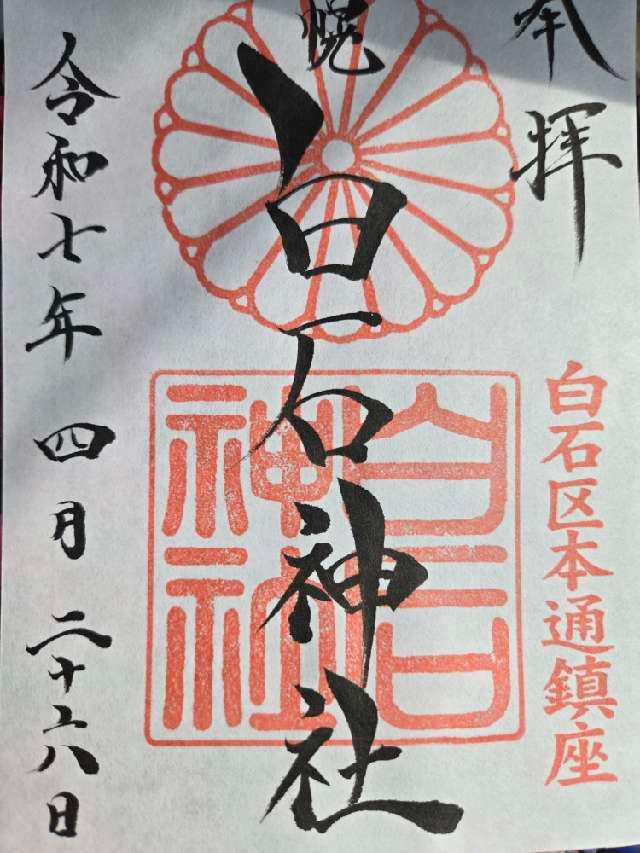 奉拝
白石区本通鎮座
幌
白石神社
白石神社
令和七年四月二十六日